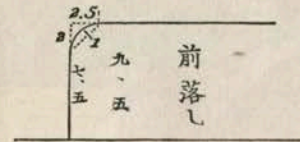 2.5
2
1
七、五
九、五
前落し